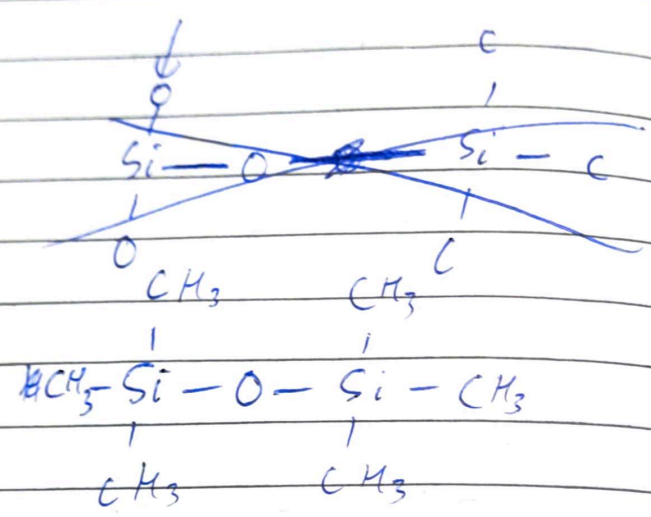 C
O
Si — O — Si — C
O C
CH₃ CH₃
CH₃ — Si — O — Si — CH₃
CH₃ CH₃